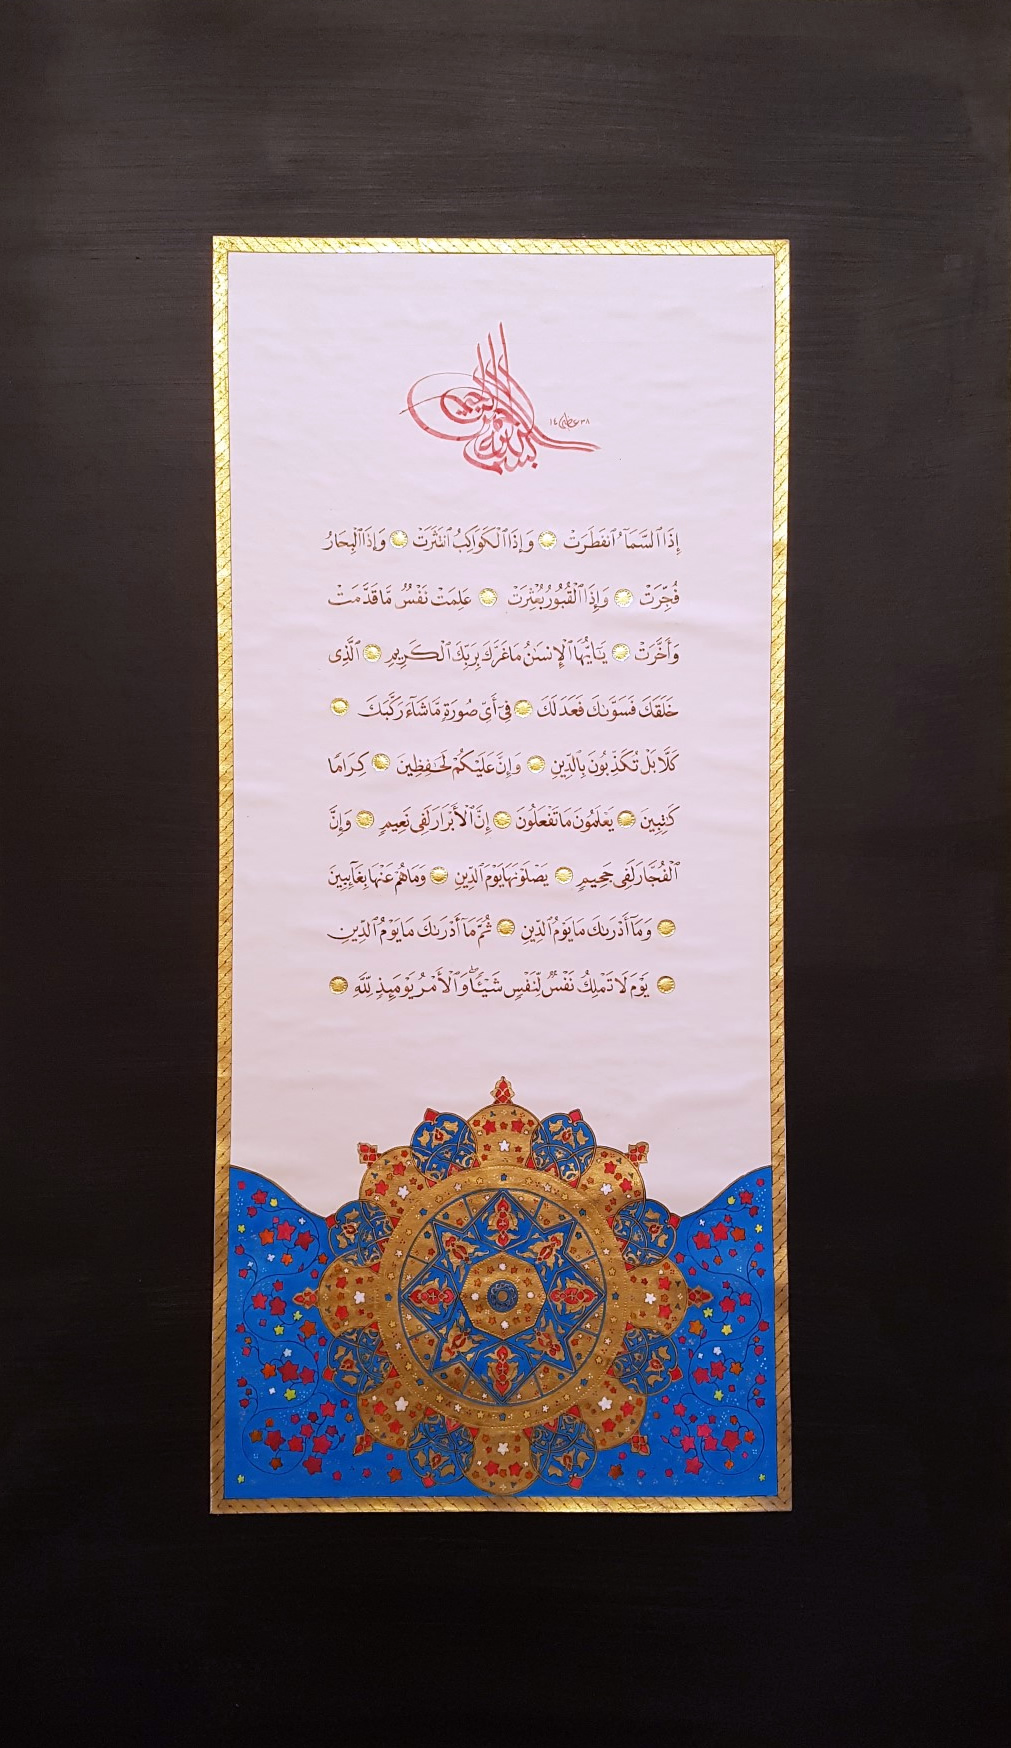 بسم الله الرحمن الرحيم
١٤٣٨
إِذَا ٱلسَّمَآءُ ٱنفَطَرَتْ وَإِذَا ٱلْكَوَاكِبُ ٱنتَثَرَتْ وَإِذَا ٱلْبِحَارُ
فُجِّرَتْ وَإِذَا ٱلْقُبُورُ بُعْثِرَتْ عَلِمَتْ نَفْسٌ مَّا قَدَّمَتْ
وَأَخَّرَتْ يَٰٓأَيُّهَا ٱلْإِنسَٰنُ مَا غَرَّكَ بِرَبِّكَ ٱلْكَرِيمِ ٱلَّذِى
خَلَقَكَ فَسَوَّىٰكَ فَعَدَلَكَ فِىٓ أَىِّ صُورَةٍ مَّا شَآءَ رَكَّبَكَ
كَلَّا بَلْ تُكَذِّبُونَ بِٱلدِّينِ وَإِنَّ عَلَيْكُمْ لَحَٰفِظِينَ كِرَامًا
كَٰتِبِينَ يَعْلَمُونَ مَا تَفْعَلُونَ إِنَّ ٱلْأَبْرَارَ لَفِى نَعِيمٍ وَإِنَّ
ٱلْفُجَّارَ لَفِى جَحِيمٍ يَصْلَوْنَهَا يَوْمَ ٱلدِّينِ وَمَا هُمْ عَنْهَا بِغَآئِبِينَ
وَمَآ أَدْرَىٰكَ مَا يَوْمُ ٱلدِّينِ ثُمَّ مَآ أَدْرَىٰكَ مَا يَوْمُ ٱلدِّينِ
يَوْمَ لَا تَمْلِكُ نَفْسٌ لِّنَفْسٍ شَيْـًٔا ۖ وَٱلْأَمْرُ يَوْمَئِذٍ لِّلَّهِ